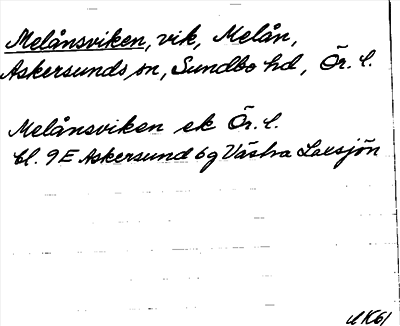 Melånsviken, vik, Melån,
Askersunds sn, Sundbo hd, Ör. l.
Melånsviken ek Ör. l.
bl. 9E Askersund 6g Västra Laxsjön
K61